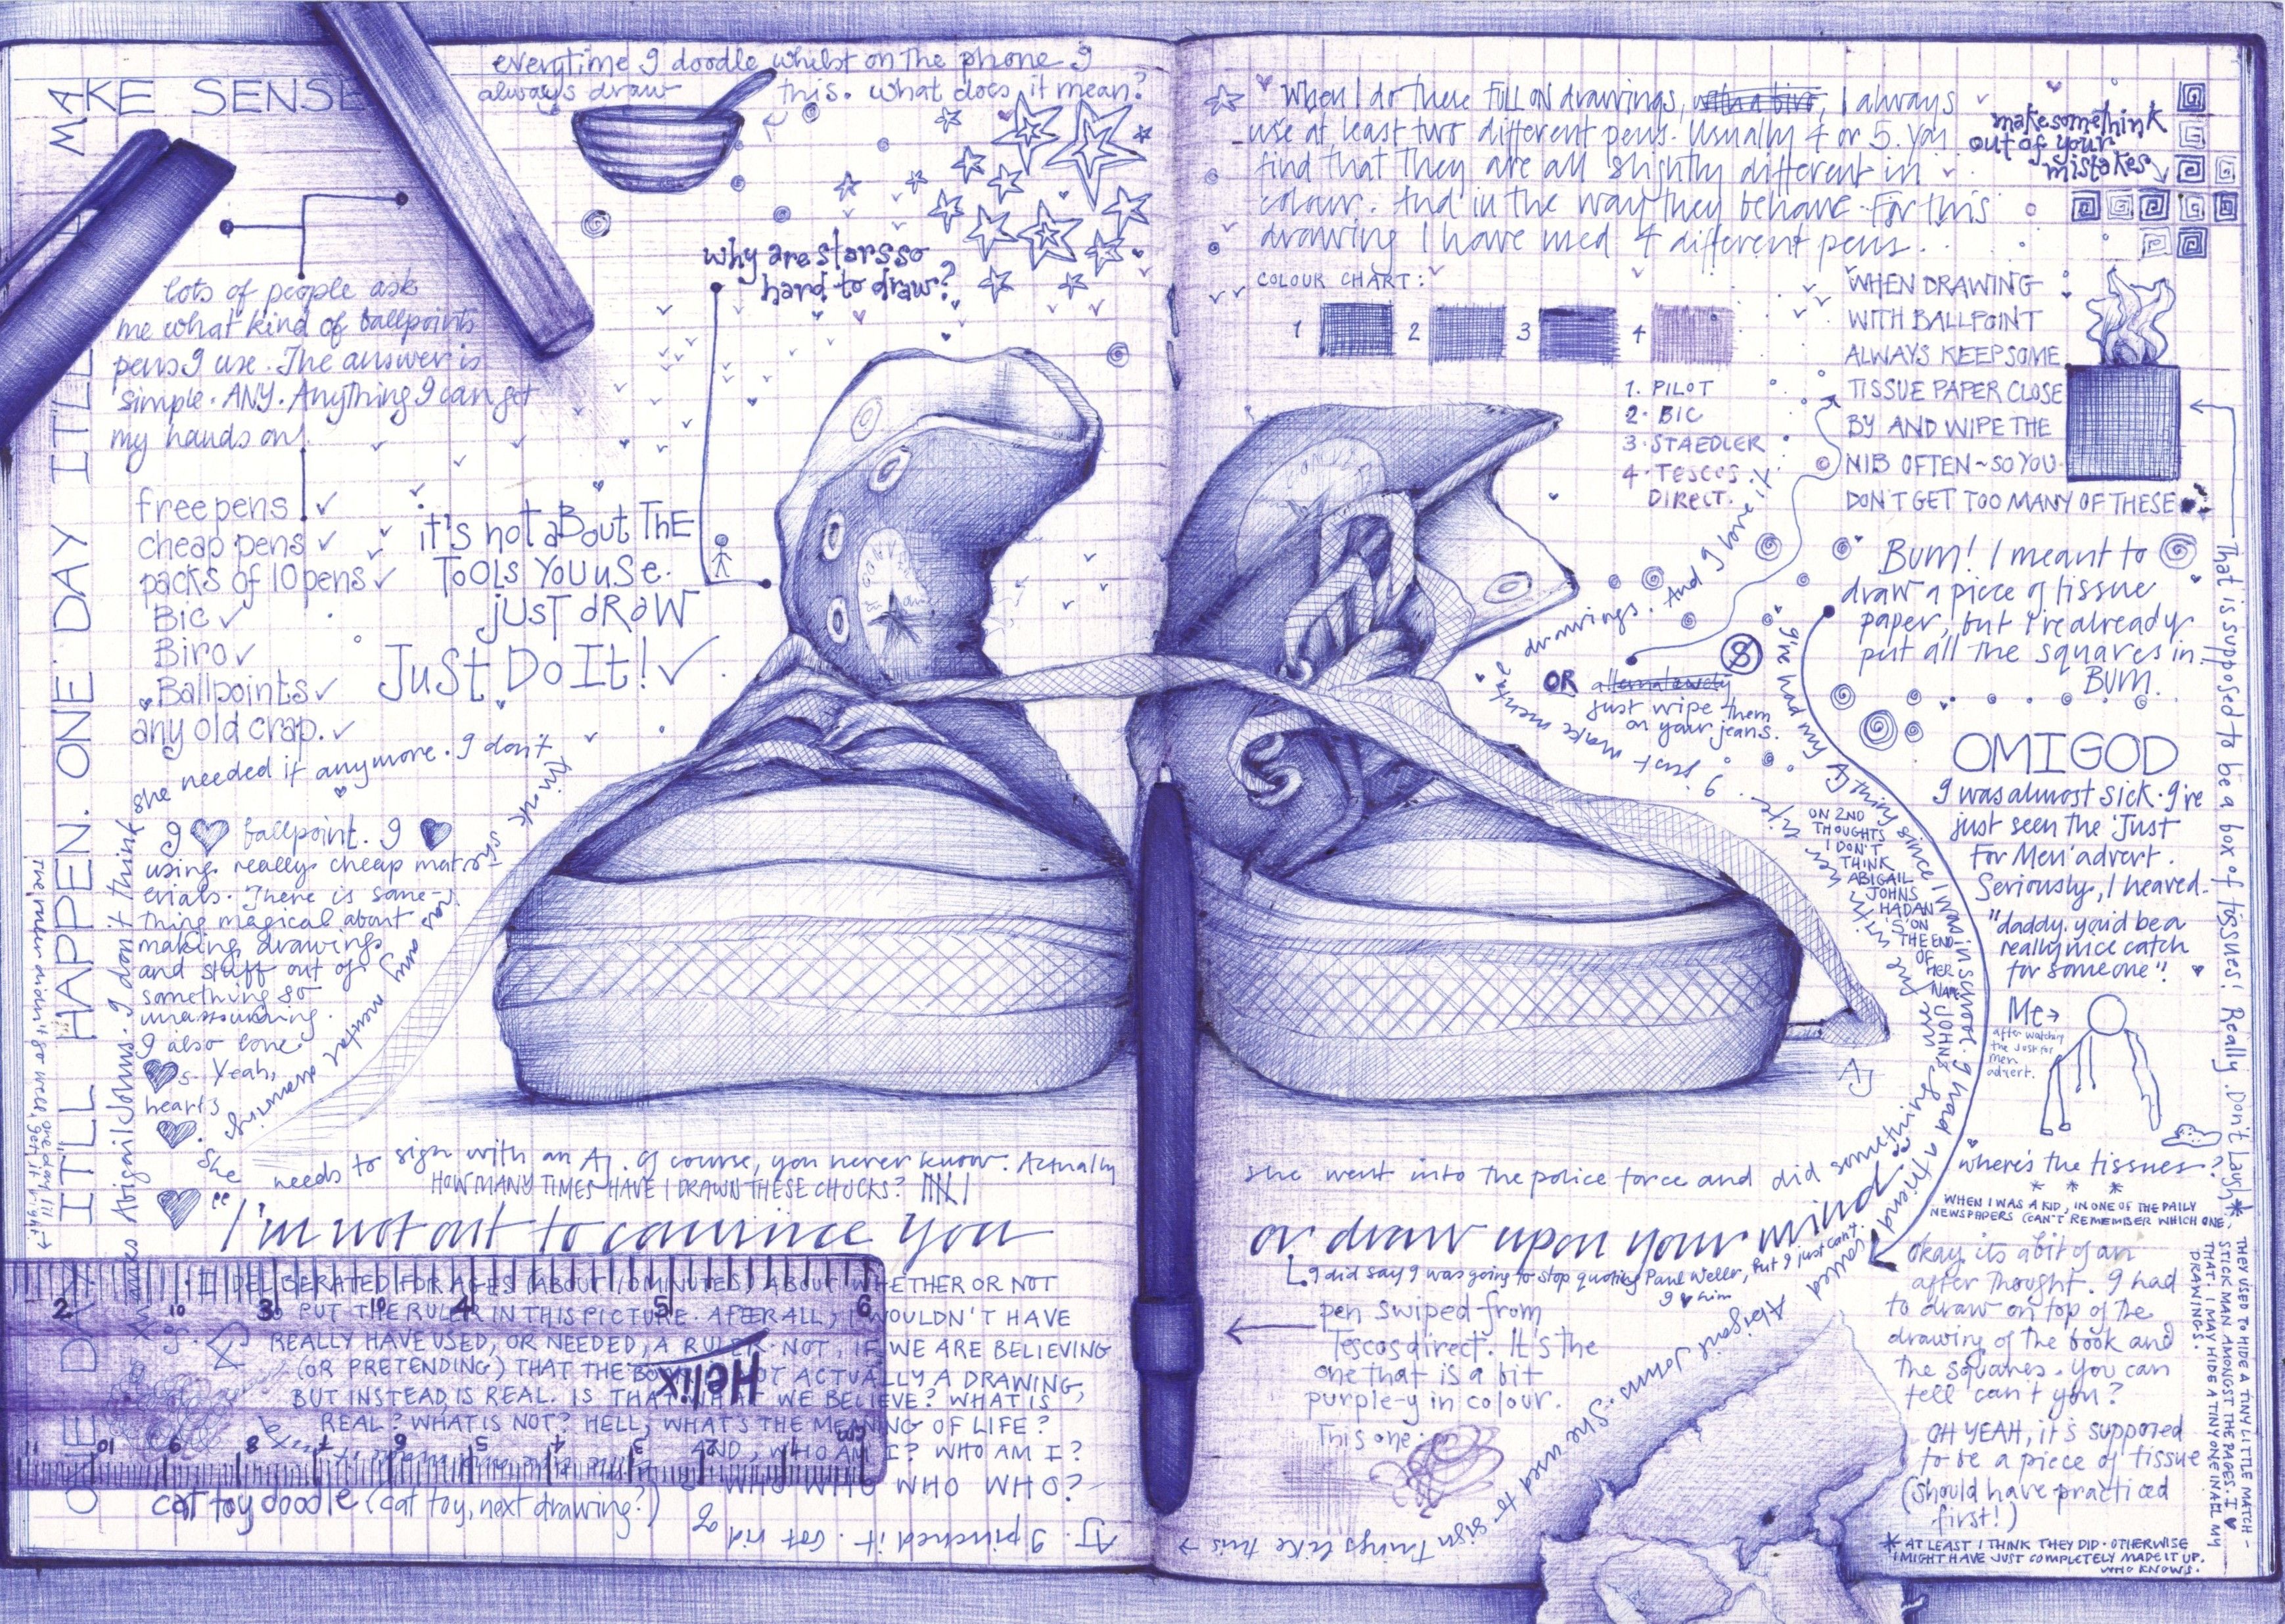 MAKE SENSE
everytime I doodle whilst on the phone I
always draw this. what does it mean?
why are stars so
hard to draw?
lots of people ask
me what kind of ballpoint
pens I use. The answer is
simple. ANY. Anything I can get
my hands on!
free pens ✓
cheap pens ✓
packs of 10 pens ✓
Bic ✓
Biro ✓
Ballpoints ✓
any old crap. ✓
it's not aBout ThE
TOOLS YOU USE.
just dRaW
JuST Do It! ✓
she needed it anymore. I don't think she
has any
I ♥ ballpoint. I ♥
using really cheap mat-
erials. There is some-
thing magical about
making drawings
and stuff out of
something so
unassuming.
I also love
♥s. Yeah,
hearts
ONE DAY IT'LL HAPPEN. ONE DAY IT'LL
Abigail Johns. I don't think
She needs to sign with an AJ. Of course, you never know. Actually
HOW MANY TIMES HAVE I DRAWN THESE CHUCKS?
"I'm not out to convince you
I DELIBERATED FOR AGES (ABOUT 10 MINUTES) ABOUT WHETHER OR NOT
TO PUT THE RULER IN THIS PICTURE. AFTER ALL, I WOULDN'T HAVE
REALLY HAVE USED, OR NEEDED, A RULER. NOT, IF WE ARE BELIEVING
(OR PRETENDING) THAT THE BOOK IS NOT ACTUALLY A DRAWING,
BUT INSTEAD IS REAL. IS THAT WHAT WE BELIEVE? WHAT IS
REAL? WHAT IS NOT? HELL, WHAT'S THE MEANING OF LIFE?
AND, WHO AM I? WHO AM I?
WHO WHO WHO WHO?
Helix
2 3 4 5 6
11 10 9 8 7 6 5 4 3 2 1
cat toy doodle (cat toy, next drawing?)
AJ. I pinched it. Got rid of
When I do these FULL ON drawings, with a biro, I always
use at least two different pens. Usually 4 or 5. You
find that they are all slightly different in
colour. And in the way they behave. For this
drawing I have used 4 different pens.
make somethink
out of your
mistakes
COLOUR CHART:
1 2 3 4
1. PILOT
2. BIC
3. STAEDLER
4. TESCOS
DIRECT.
WHEN DRAWING
WITH BALLPOINT
ALWAYS KEEP SOME
TISSUE PAPER CLOSE
BY AND WIPE THE
NIB OFTEN ~ SO YOU
DON'T GET TOO MANY OF THESE
Bum! I meant to
draw a piece of tissue
paper, but I've already
put all the squares in.
BUM.
That is supposed to be a box of tissues! Really. Don't Laugh *
OR alternatively
just wipe them
on your jeans.
I just make mental drawings. And I love it
she had my AJ thing since I was in school. I had a friend called Abigail Johns. She used to sign things like this →
ON 2ND
THOUGHTS
I DON'T
THINK
ABIGAIL
JOHNS
HAD AN
'S' ON
THE END
OF
HER
NAME
OMIGOD
I was almost sick. I've
just seen the 'Just
For Men' advert.
Seriously, I heaved.
"daddy. you'd be a
really nice catch
for someone"!
Me →
after watching
the Just for
men
advert.
where's the tissues?
* * *
WHEN I WAS A KID, IN ONE OF THE DAILY
NEWSPAPERS (CAN'T REMEMBER WHICH ONE,
THEY USED TO HIDE A TINY LITTLE MATCH-
STICK MAN AMONGST THE PAGES. I ♥
THAT. I MAY HIDE A TINY ONE IN ALL MY
DRAWINGS.
AJ
she went into the police force and did something
or draw upon your mind.
I did say I was going to stop quoting Paul Weller, but I just can't.
I ♥ him
pen swiped from
Tescos direct. It's the
one that is a bit
purple-y in colour.
This one:
Okay, its a bit of an
after thought. I had
to draw on top of the
drawing of the book and
the squares. You can
tell can't you?
OH YEAH, it's supposed
to be a piece of tissue
(should have practiced
first!)
* AT LEAST I THINK THEY DID. OTHERWISE
I MIGHT HAVE JUST COMPLETELY MADE IT UP.
WHO KNOWS.